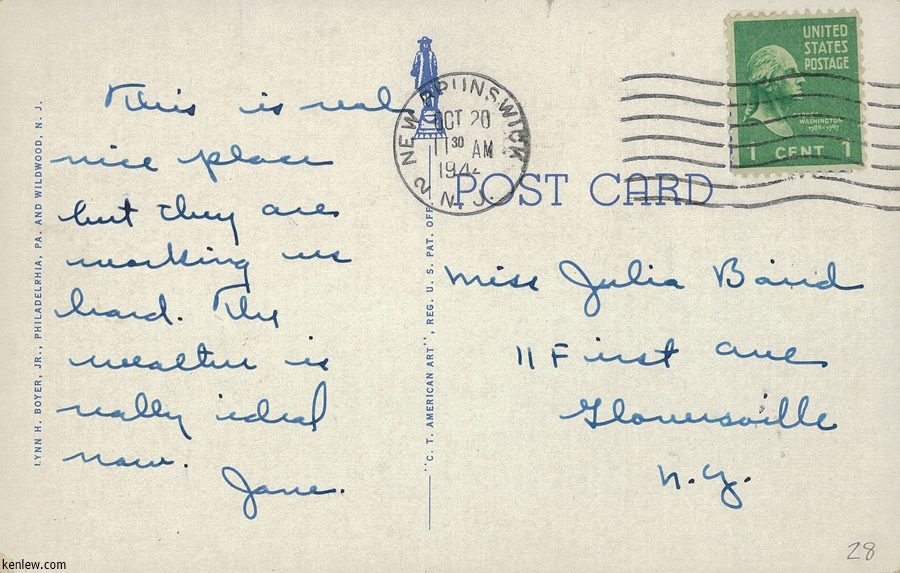 This is real
nice place
but they are
working us
hard. The
weather is
really ideal
now.
Jane.
LYNN H. BOYER, JR., PHILADELRHIA, PA. AND WILDWOOD, N. J.
"C. T. AMERICAN ART", REG. U. S. PAT. OFF.
NEW BRUNSWICK
OCT 20
11 30 AM
194
N. J.
2
UNITED
STATES
POSTAGE
WASHINGTON
1789-1797
1 CENT 1
POST CARD
Miss Julia Baird
11 First ave
Gloversville
N.Y.
28
kenlew.com